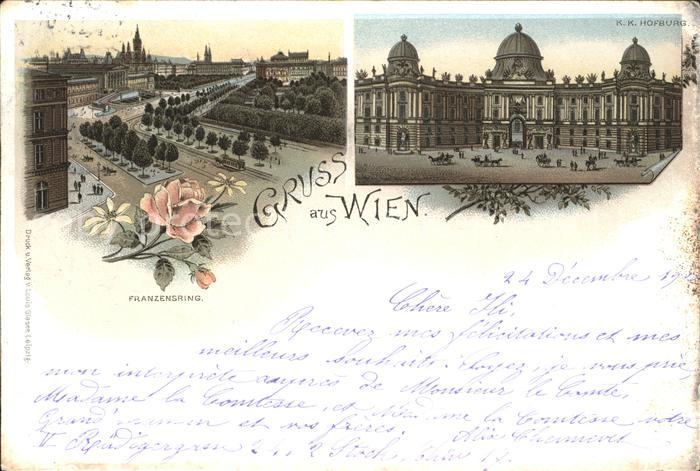 K. K. HOFBURG.
GRUSS
aus WIEN.
FRANZENSRING.
Druck u. Verlag v. Louis Glaser, Leipzig.
24 Décembre
Chère
Recevez mes félicitations et mes
meilleurs souhaits. Soyez, je vous prie,
mon interprète auprès de Monsieur le Comte,
Madame la Comtesse, et Madame la Comtesse votre
Grand'maman et vos frères. Alix
V 2 Stock,